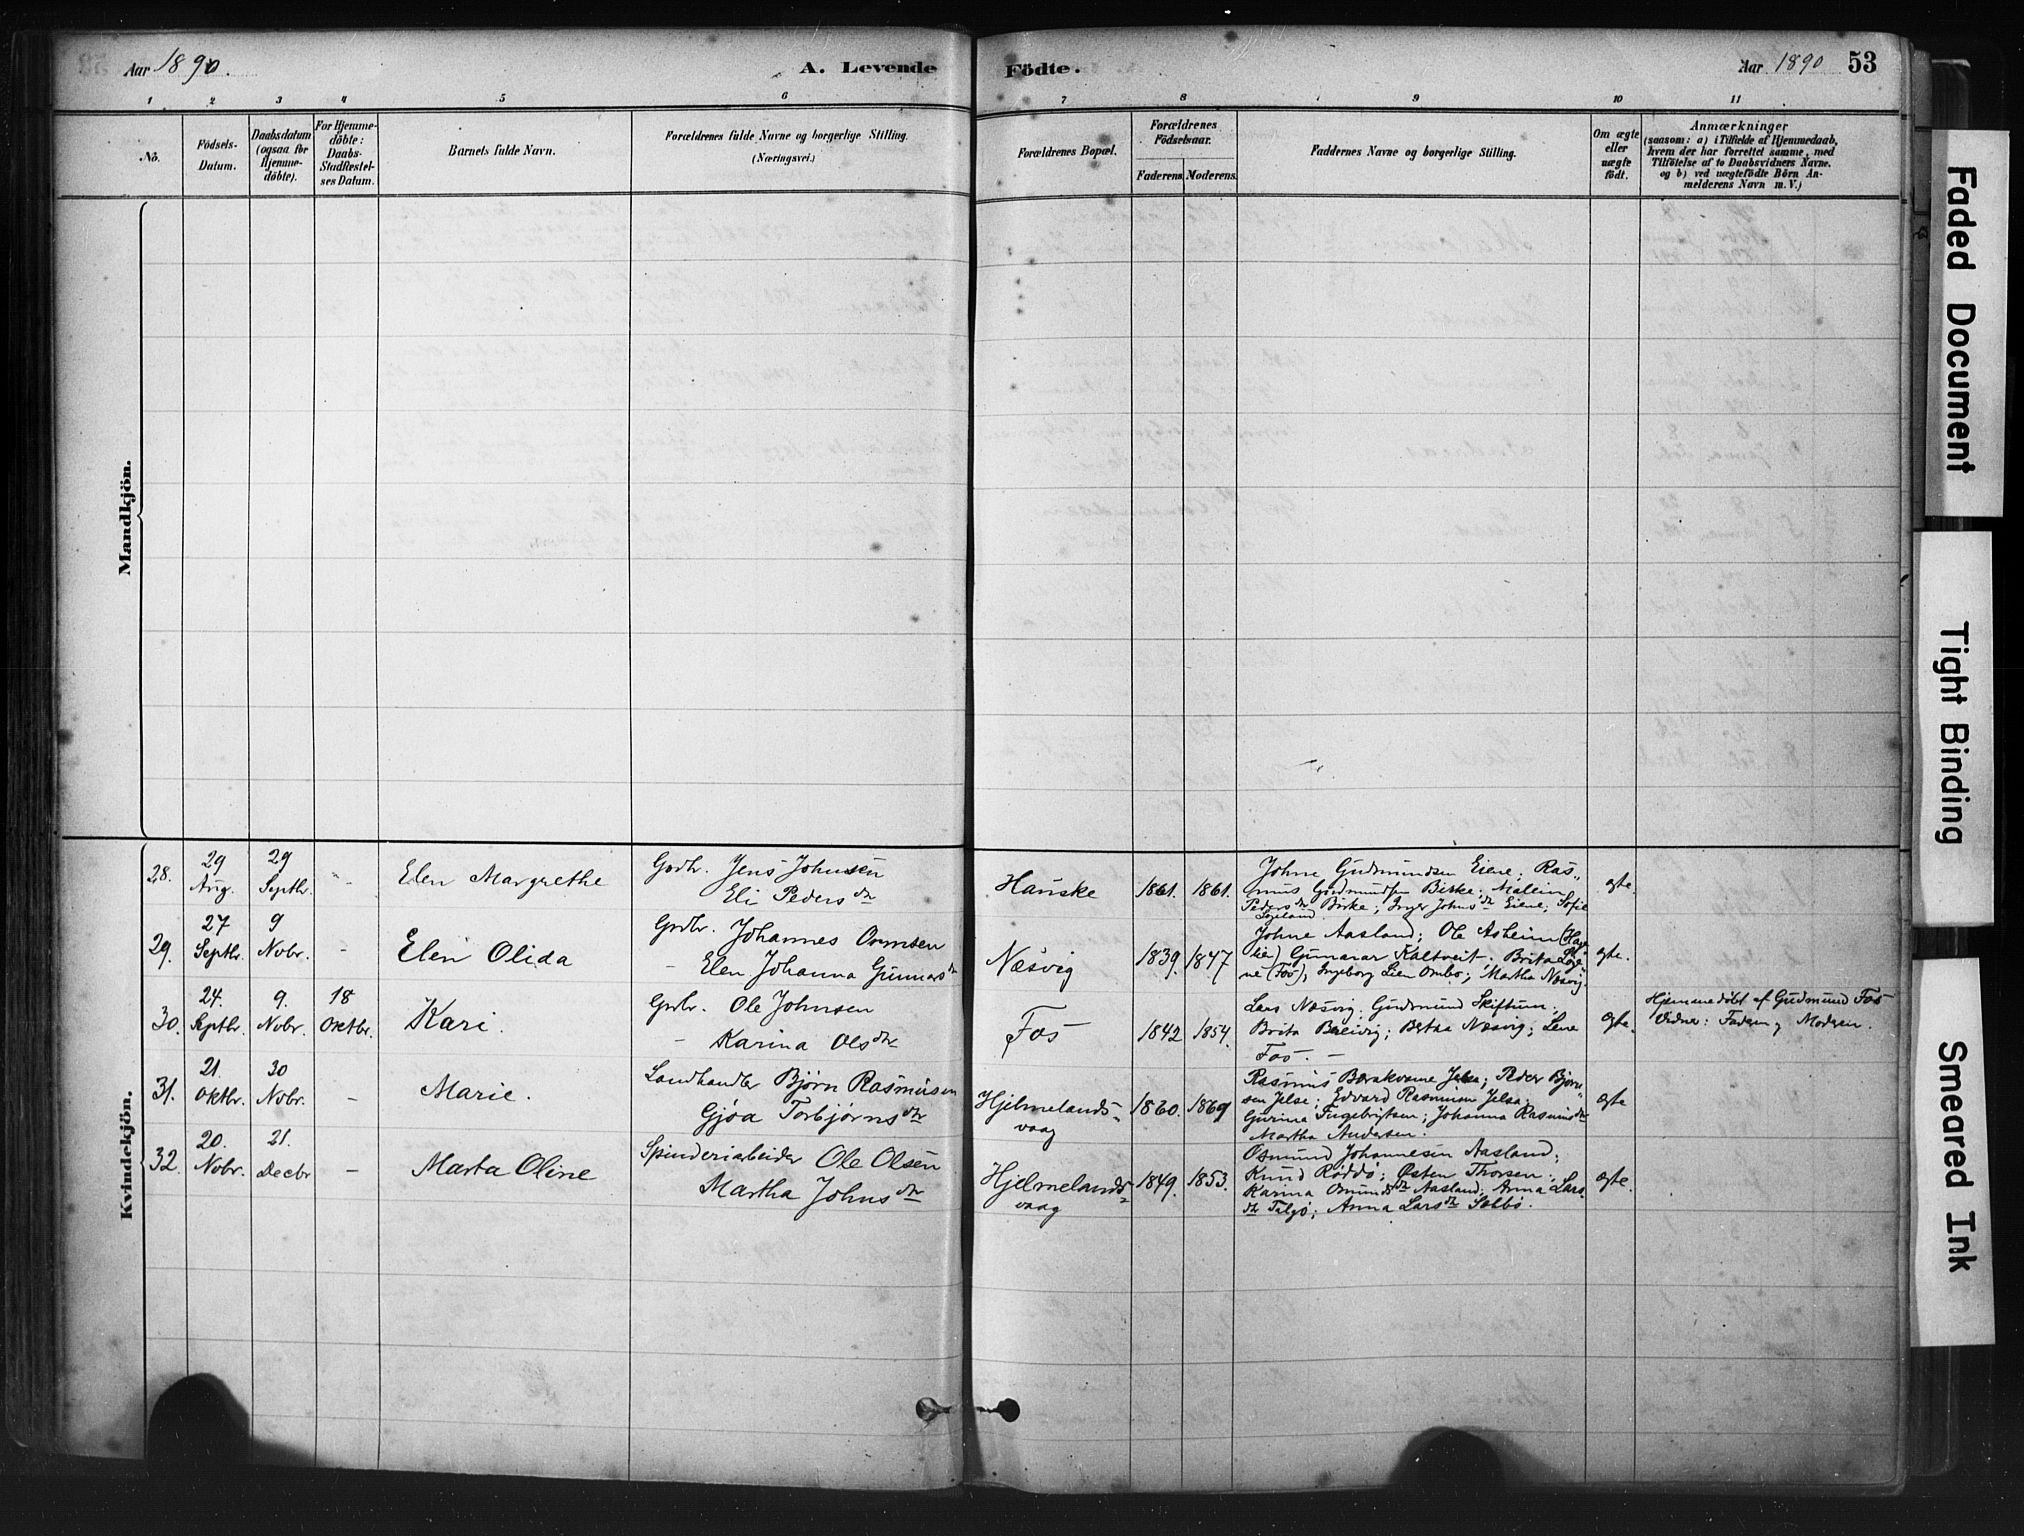 Aar 1890.
A. Levende Födte.
Aar 1890
53
1 2 3 4 5 6 7 8 9 10 11
No.
Födsels-
Datum.
Daabsdatum
(ogsaa for
Hjemme-
döbte).
For Hjemme-
döbte:
Daabs-
Stadfæstel-
ses Datum.
Barnets fulde Navn.
Forældrenes fulde Navne og borgerlige Stilling.
(Næringsvei.)
Forældrenes Bopæl.
Forældrenes
Födselsaar.
Faderens. Moderens.
Faddernes Navne og borgerlige Stilling.
Om ægte
eller
uægte
födt.
Anmærkninger
(saasom: a) i Tilfælde af Hjemmedaab,
hvem der har forrettet samme, med
Tilföielse af to Daabsvidners Navne.
og b) ved uægtefödte Börn An-
melderens Navn m. V.)
Mandkjön.
Kvindekjön.
28.
29
Aug.
29
Septbr.
-
Elen Margrethe
Gbr. Jens Johnsen
Eli Pedersdtr
Hauske
1861. 1861.
Johne Gudmundsen Eiene; Ras-
mus Gudmundsen Birke; Malein
Pedersdtr Birke; Inger Johnsdtr Eiene; Sofie
ægte
29.
27
Septbr.
9
Nobr.
-
Elen Olida
Gbr. Johannes Osmsen
- Elen Johanna Gunnarsdtr
Næsvig
1839. 1847
Johne Aasland; Ole Asheim (Hage
lie) Gunnar Kaltveit. Brita Lage
ne (Fos), Ingeborg Lien Ombo; Martha Næsvig.
ægte.
30.
24.
Septbr.
9.
Nobr.
18
Oktbr.
Kari.
Gbr. Ole Johnsen
- Karina Olsdtr
Fos
1842 1854.
Lars Næsvig. Gudmund Skiftun.
Brita Breivig; Bertha Næsvig; Lene
Fos. -
ægte.
Hjemmedøbt af Gudmund Fos
Vidner: Faderen og Moderen.
31.
21.
Oktbr.
30
Nobr.
-
Marie.
Landhandler Bjørn Rasmusen
Gjøa Torbjørnsdtr
Hjelmelands-
vaag
1860. 1869
Rasmus Barkvame Jelse; Peder Bjørn
sen Jelse; Edvard Rasmusen Jelsa.
Gurina Ingebrigtsen; Johanna Rasmusdtr
Martha Andersen.
ægte
32.
20.
Nobr.
21.
Decbr
-
Marta Oline
Spinderiarbeider Ole Olsen
Martha Johnsdtr
Hjelmelands-
vaag
1849. 1853.
Osmund Johannesen Aasland;
Knud Røddø; Østen Thorsen;
Karina Osmundsdtr Aasland; Anna Lars-
dtr Talgø; Anna Larsdtr Sølbø.
ægte.
Faded Document
Tight Binding
Smeared Ink